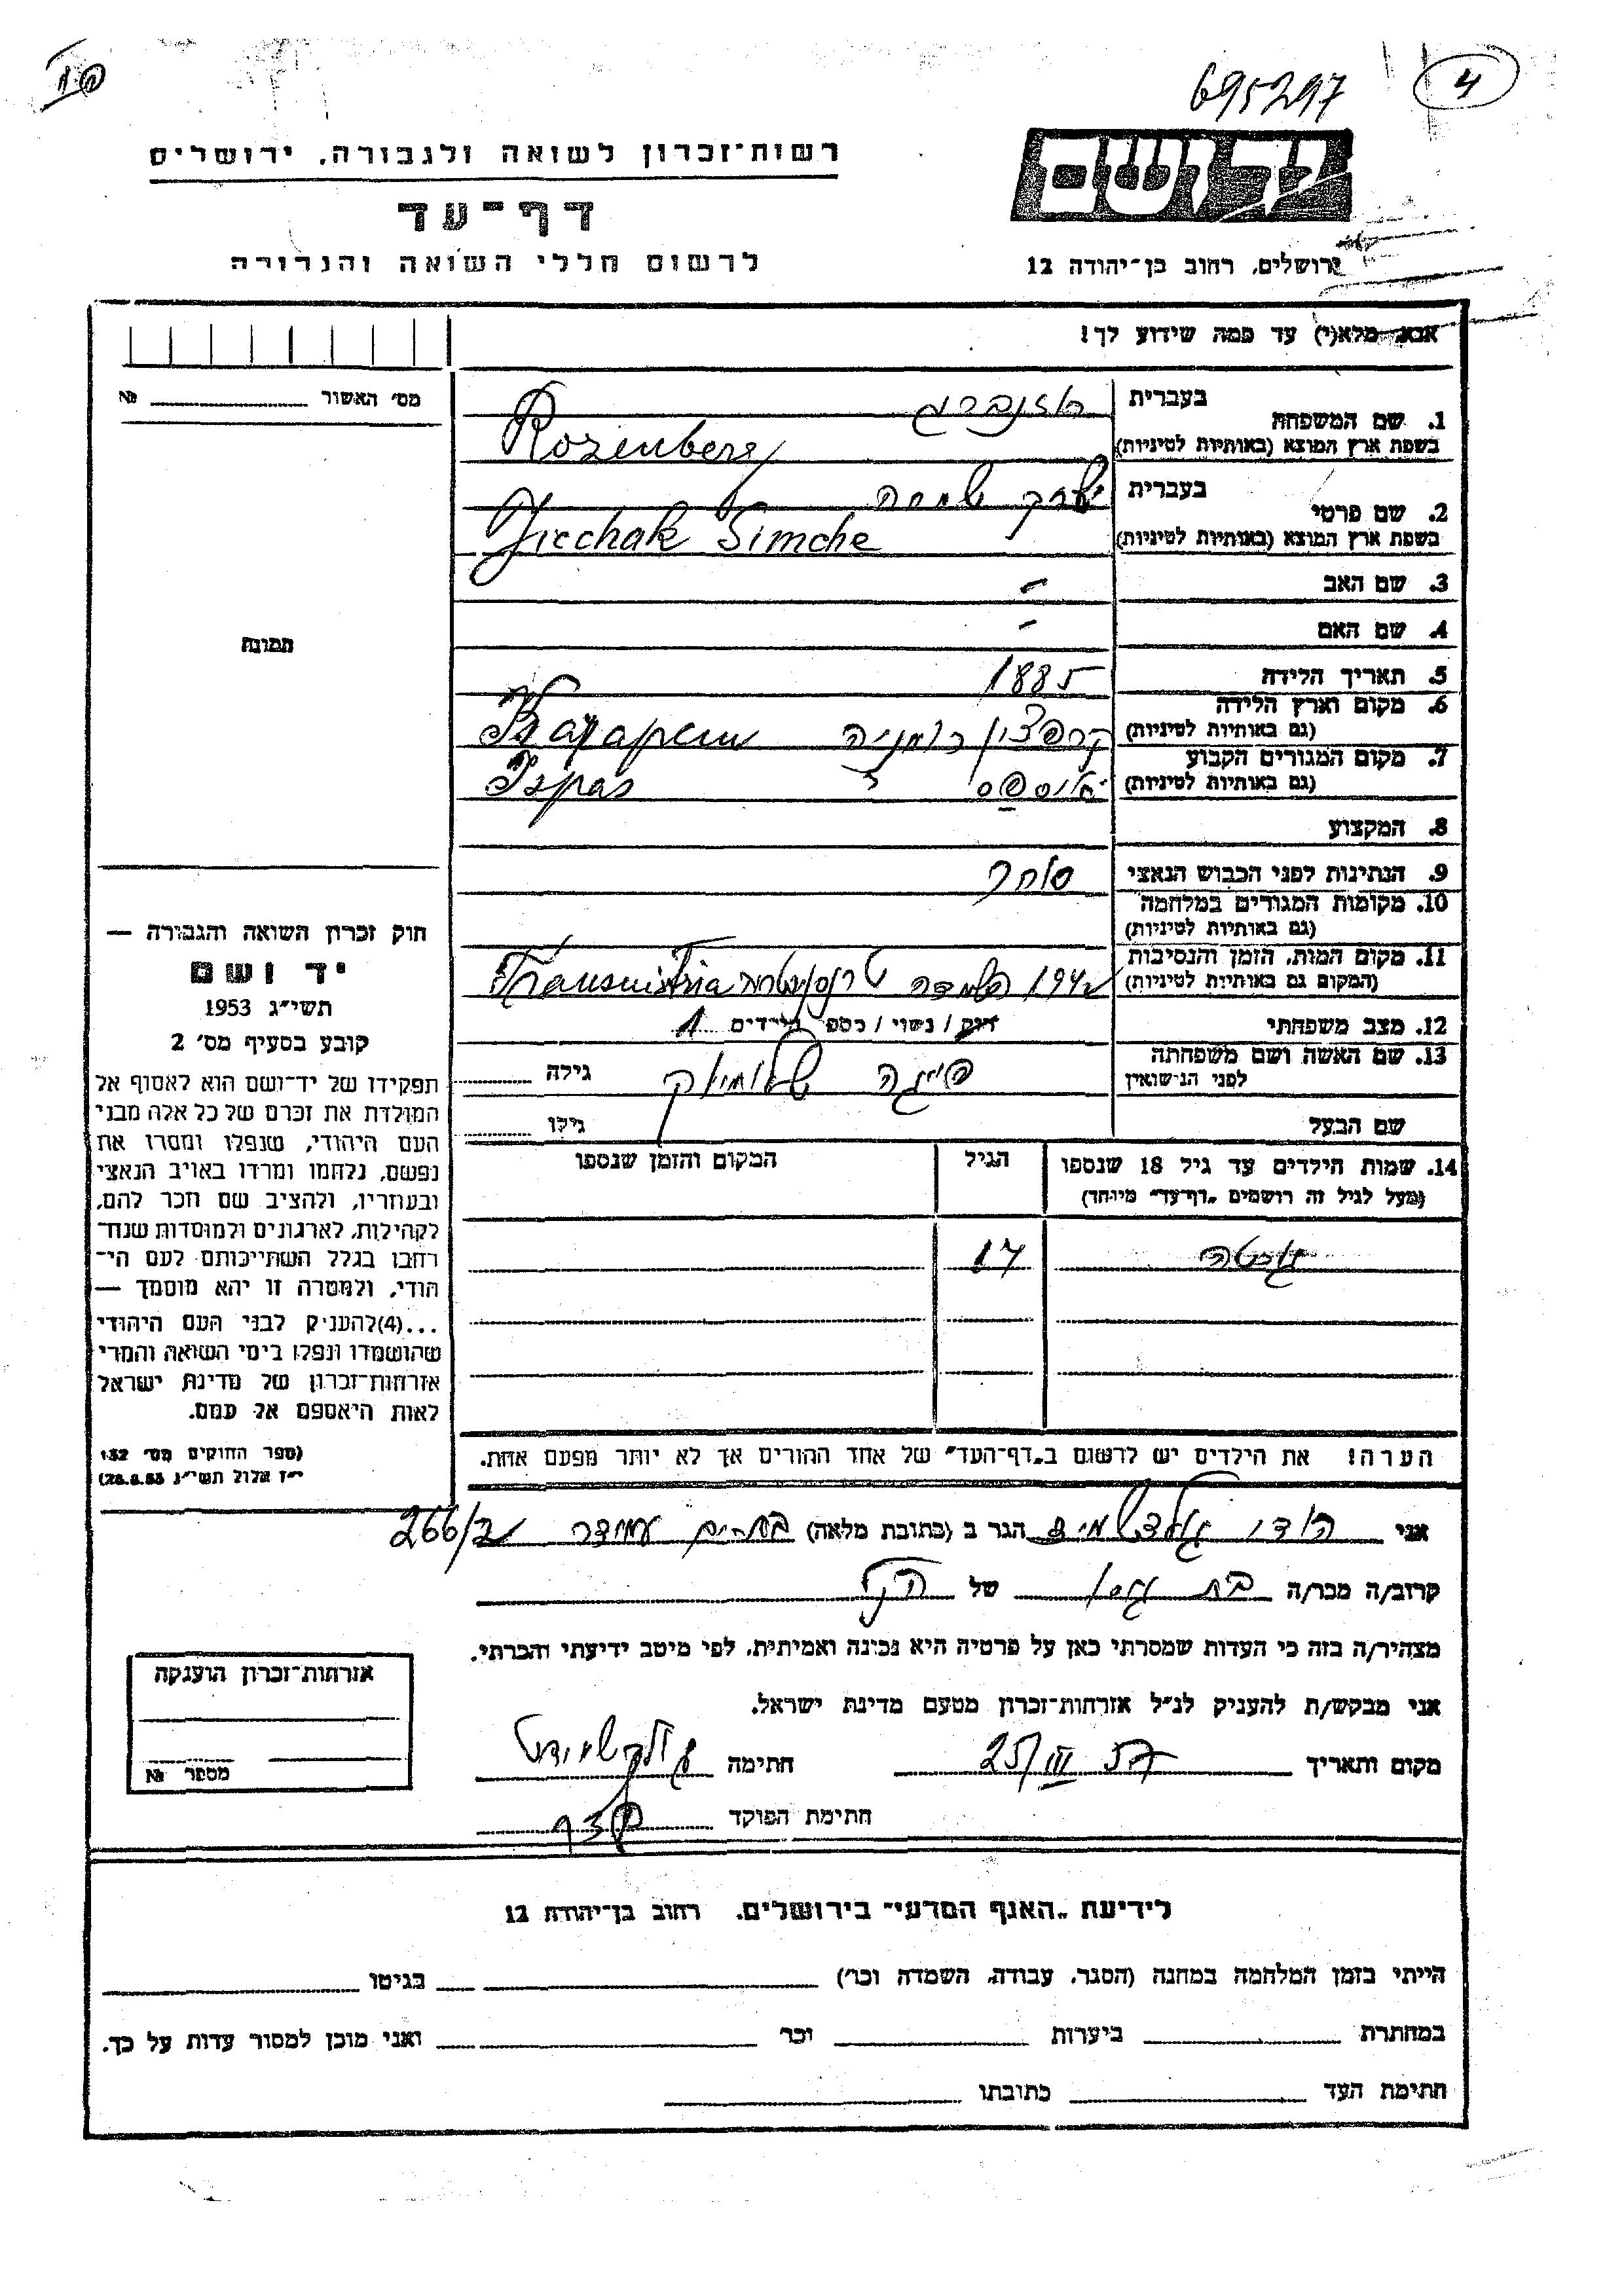 695297
4
רשות־זכרון לשואה ולגבורה, ירושלים
דף־עד
לרשום חללי השואה והגבורה
יד ושם
ירושלים, רחוב בן־יהודה 12
אנא מלא(י) עד כמה שידוע לך!
מס׳ האשור № 
1. שם המשפחה
בעברית רוזנברג
בשפת ארץ המוצא (באותיות לטיניות) Rozenberg
2. שם פרטי
בעברית יצחק שמחה
בשפת ארץ המוצא (באותיות לטיניות) Jicchak Simche
3. שם האב -
4. שם האם -
תמונה
5. תאריך הלידה 1885
6. מקום וארץ הלידה
(גם באותיות לטיניות) רומניה
7. מקום המגורים הקבוע
(גם באותיות לטיניות) Ispas
8. המקצוע
9. הנתינות לפני הכבוש הנאצי סוחר
10. מקומות המגורים במלחמה
(גם באותיות לטיניות)
11. מקום המות, הזמן והנסיבות
(המקום גם באותיות לטיניות) 1942 Transnistria
12. מצב משפחתי רוק / נשוי / מספר הילדים 1
13. שם האשה ושם משפחתה
לפני הנישואין פייגה גילה
שם הבעל גילו
14. שמות הילדים עד גיל 18 שנספו הגיל המקום והזמן שנספו
(מעל לגיל זה רושמים „דף־עד״ מיוחד)
17
הערה! את הילדים יש לרשום ב„דף־העד״ של אחד ההורים אך לא יותר מפעם אחת.
חוק זכרון השואה והגבורה —
יד ושם
תשי״ג 1953
קובע בסעיף מס׳ 2
תפקידו של יד־ושם הוא לאסוף אל
המולדת את זכרם של כל אלה מבני
העם היהודי, שנפלו ומסרו את
נפשם, נלחמו ומרדו באויב הנאצי
ובעוזריו, ולהציב שם וזכר להם,
לקהילות, לארגונים ולמוסדות שנח־
רבו בגלל השתייכותם לעם הי־
הודי, ולמטרה זו יהא מוסמך —
...(4)להעניק לבני העם היהודי
שהושמדו ונפלו בימי השואה והמרי
אזרחות־זכרון של מדינת ישראל
לאות היאספם אל עמם.
(ספר החוקים מס׳ 132
י״ז אלול תשי״ג 28.8.53)
אני גולדשמיד הגר ב (כתובת מלאה) עמידר 266/2
קרוב/ה מכר/ה של הנ״ל
מצהיר/ה בזה כי העדות שמסרתי כאן על פרטיה היא נכונה ואמיתית, לפי מיטב ידיעתי והכרתי.
אני מבקש/ת להעניק לנ״ל אזרחות־זכרון מטעם מדינת ישראל.
מקום ותאריך 25/III 57 חתימה
חתימת הפוקד
אזרחות־זכרון הוענקה
מספר №
לידיעת „האגף המדעי״ בירושלים, רחוב בן־יהודה 12
הייתי בזמן המלחמה במחנה (הסגר, עבודה, השמדה וכר׳) בגיטו
במחתרת ביערות וכר׳ ואני מוכן למסור עדות על כך.
חתימת העד כתובתו